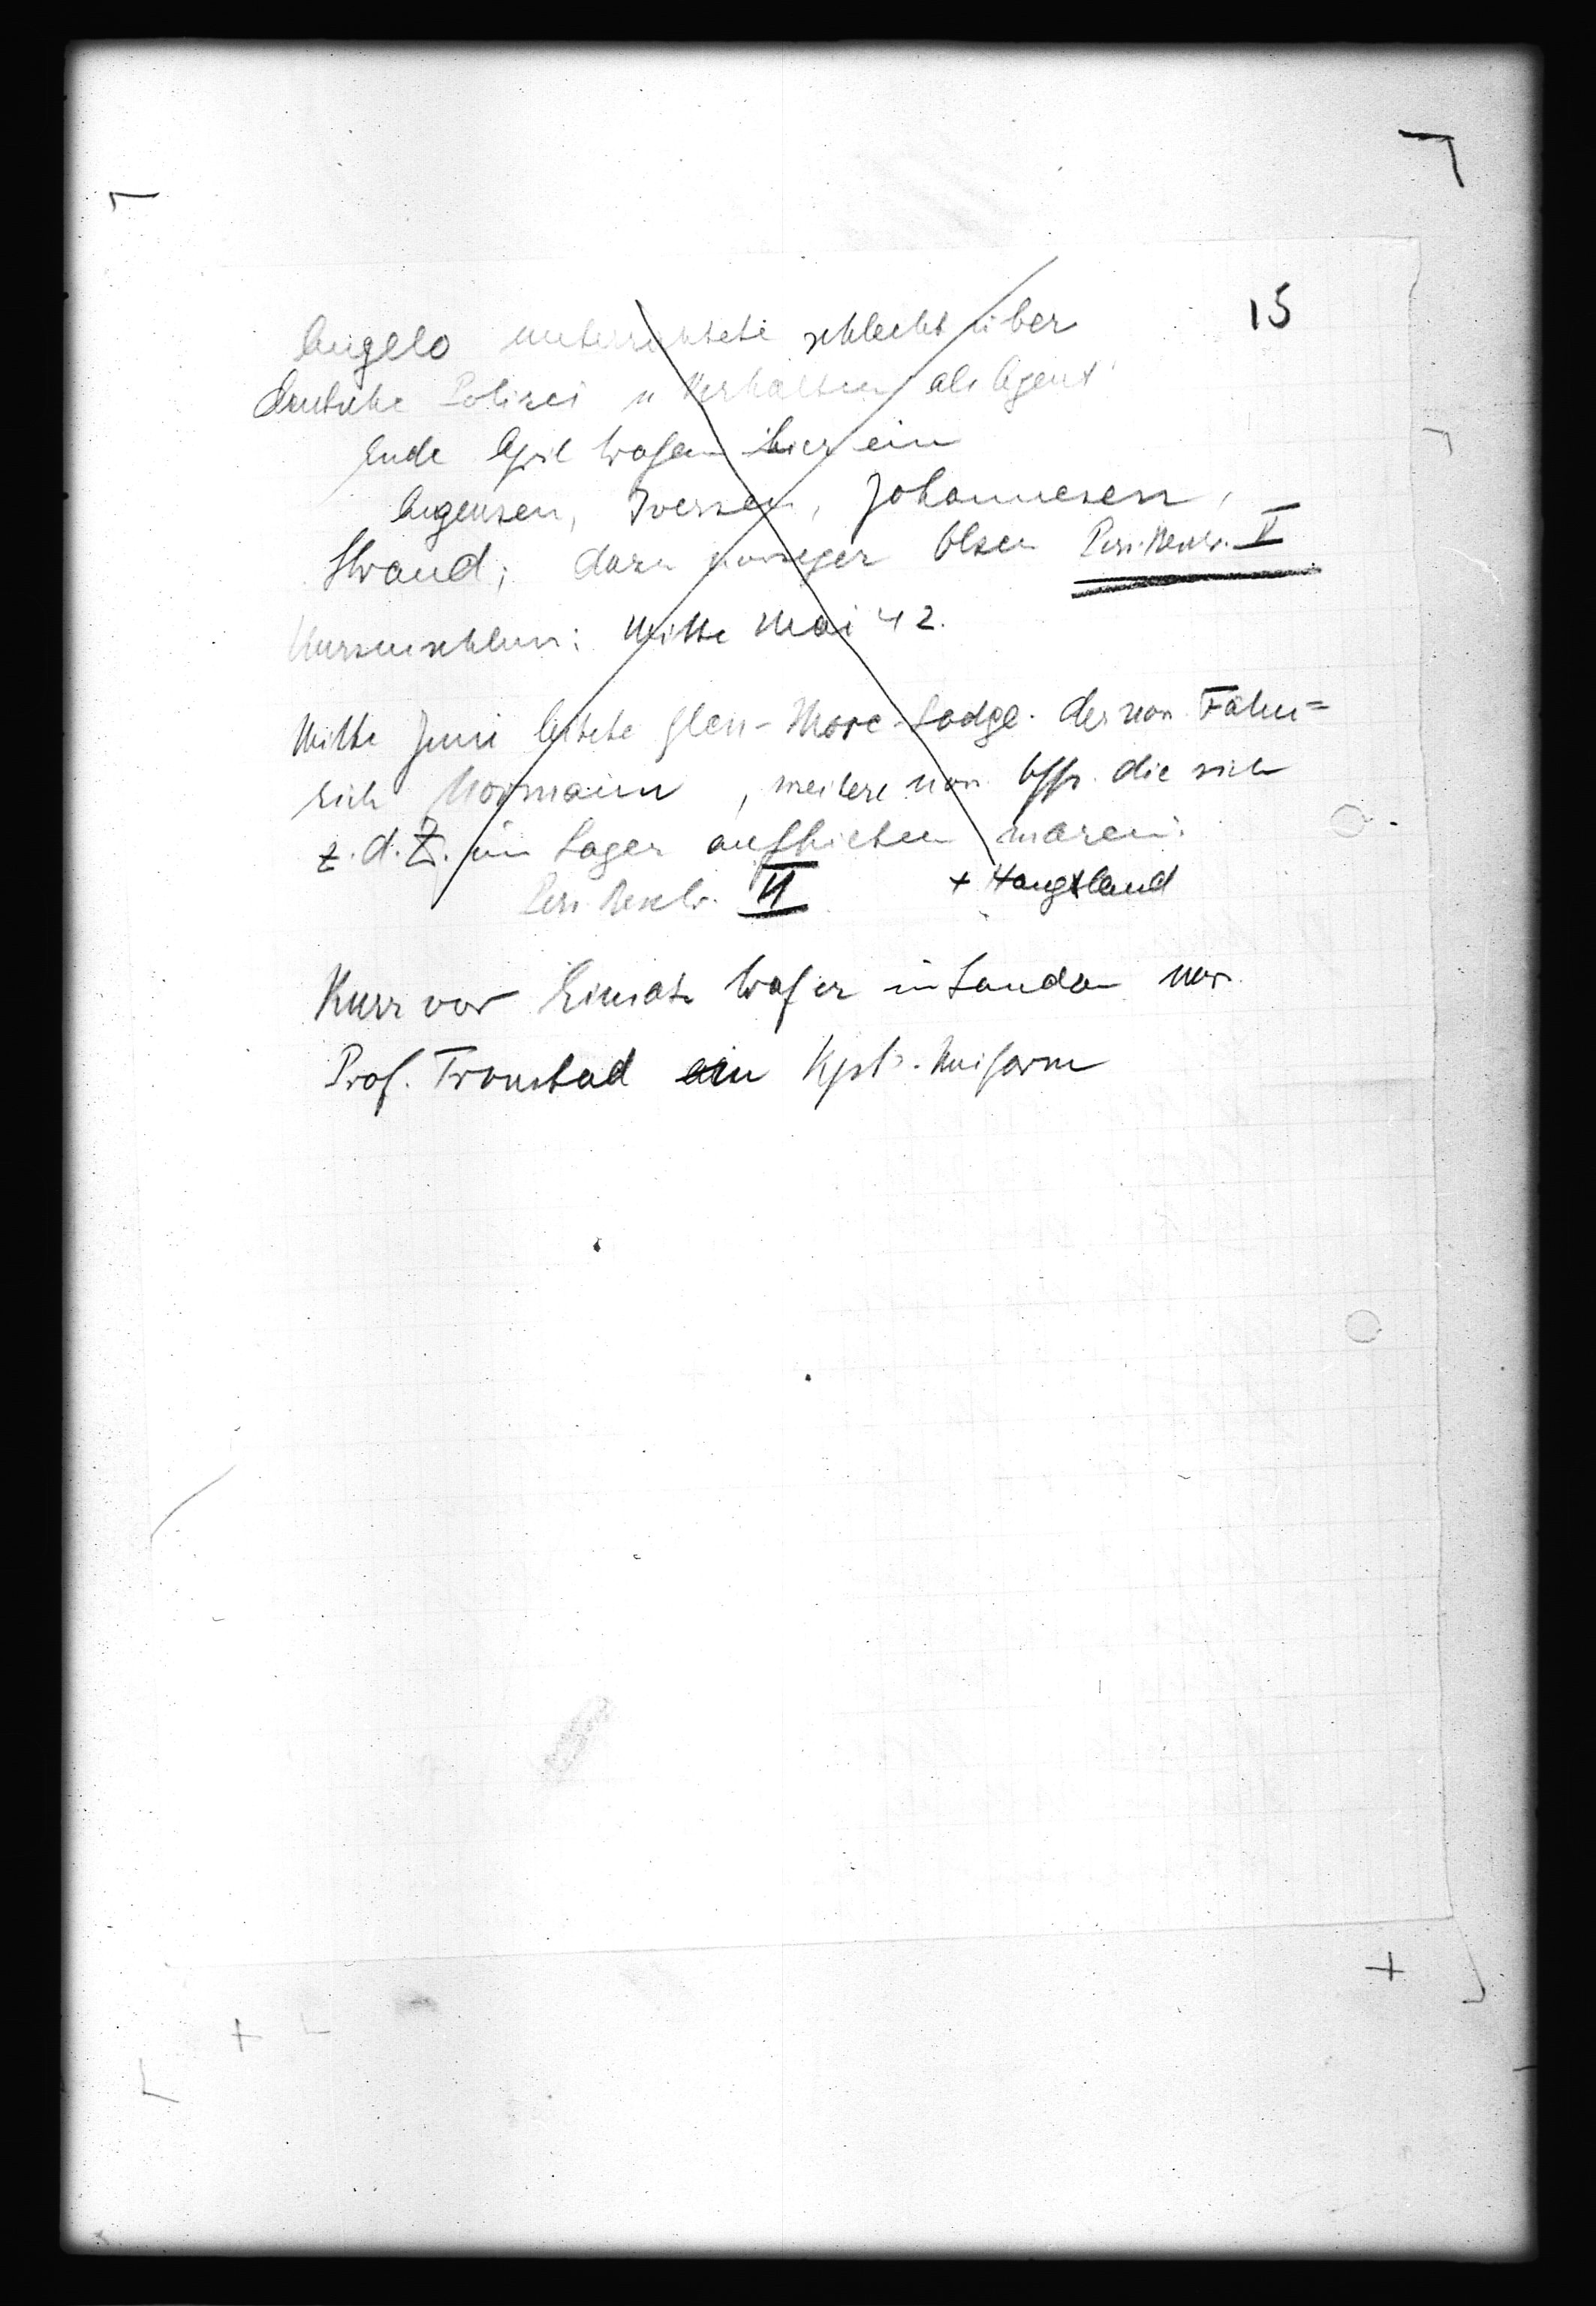 15
Angelo unterrichtete schlecht über
deutsche Polizei u Verhalten als Agent
Ende April trafen hier ein
Augensen, Iversen, Johannesen,
Strand; dazu Olsen Pers. Beschr. V
Kursusschluss: Mitte Mai 42.
Mitte Juni leitete Glen-More-Lodge der nor. Fähn=
rich Normann, weitere nor. Offz. die sich
z. d. Z. im Lager aufhielten waren:
Pers. Beschr. VI + Haugland
Kurz vor Einsatz traf er in London nor.
Prof. Tronstad in Kpt. Uniform